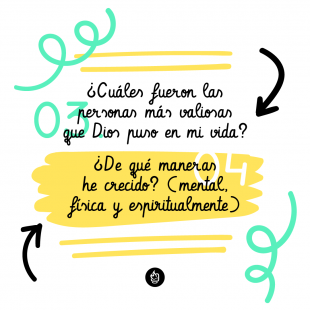 03.
¿Cuáles fueron las
personas más valiosas
que Dios puso en mi vida?
04
¿De qué maneras
he crecido? (mental,
física y espiritualmente)